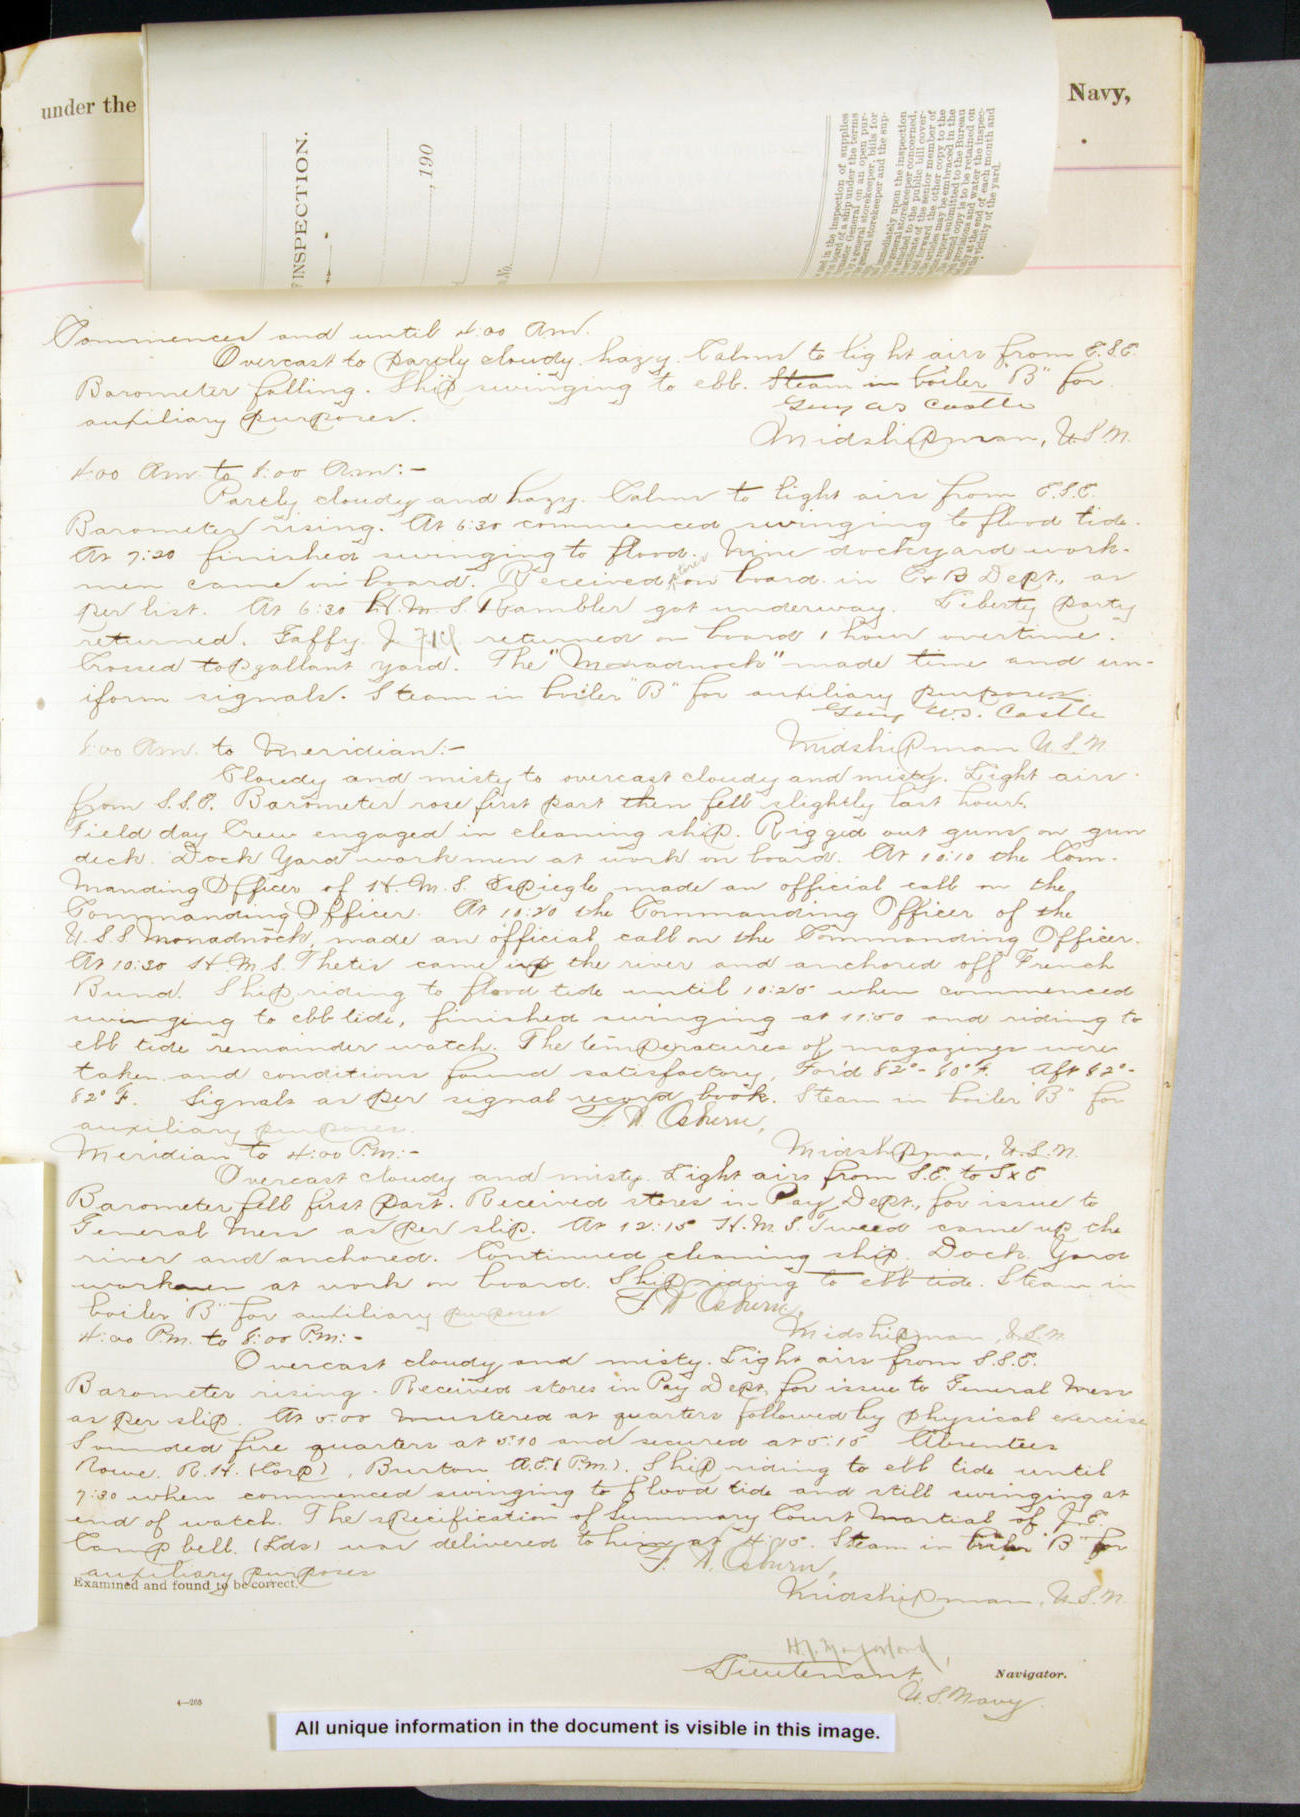 under the
Navy,
INSPECTION.
, 190
No.
Commences and until 4:00 A.M.
Overcast to partly cloudy. hazy. Calms to light airs from E.S.E.
Barometer falling. Ship swinging to ebb. Steam in boiler "B" for
auxiliary purposes.
Guy W.S. Castle
Midshipman, U.S.N.
4:00 A.M. to 8:00 A.M:-
Partly cloudy and hazy. Calms to light airs from E.S.E.
Barometer rising. At 6:30 commenced swinging to flood tide.
At 7:20 finished swinging to flood. Nine dockyard work-
men came on board. Received stores on board in C & B Dept., as
per list. At 6:30 H.M.S. Rambler got underway. Liberty party
returned. Gaffy. J returned on board 1 hour overtime.
Crossed topgallant yard. The "Monadnock" made time and un-
iform signals. Steam in boiler "B" for auxiliary purposes.
Guy W.S. Castle
Midshipman U.S.N.
8:00 A.M. to Meridian:-
Cloudy and misty to overcast cloudy and misty. Light airs
from S.S.E. Barometer rose first part then fell slightly last hour.
Field day Crew engaged in cleaning ship. Rigged out guns on gun
deck. Dock Yard workmen at work on board. At 10:10 the Com-
manding Officer of H.M.S. Espiegle made an official call on the
Commanding Officer. At 10:20 the Commanding Officer of the
U.S.S Monadnock, made an official call on the Commanding Officer.
At 10:30 H.M.S. Thetis came up the river and anchored off French
Bund. Ship riding to flood tide until 10:25 when commenced
swinging to ebb tide, finished swinging at 11:50 and riding to
ebb tide remainder watch. The temperatures of magazines were
taken and conditions found satisfactory, For'd 82°- 80° F. Aft 82°-
82° F. Signals as per signal record book. Steam in boiler "B" for
auxiliary purposes.
F. N. Osburn,
Midshipman, U.S.N.
Meridian to 4:00 P.M:-
Overcast cloudy and misty. Light airs from S.E. to SxE
Barometer fell first part. Received stores in Pay Dept., for issue to
General Mess as per slip. At 12:15 H.M.S. Tweed came up the
river and anchored. Continued cleaning ship. Dock Yard
workmen at work on board. Ship riding to ebb tide. Steam in
boiler "B" for auxiliary purposes
F N Osburn,
Midshipman, U.S.N.
4:00 P.M. to 8:00 P.M:-
Overcast cloudy and misty. Light airs from S.S.E.
Barometer rising. Received stores in Pay Dept, for issue to General Mess
as per slip. At 5:00 mustered at quarters followed by physical exercise
Sounded fire quarters at 5:10 and secured at 5:15 Absentees
Rowe. R.H. (Corp), Burton A.E. (P.M.). Ship riding to ebb tide until
7:30 when commenced swinging to flood tide and still swinging at
end of watch. The specification of Summary Court Martial of J.E.
Campbell. (Lds) was delivered to him at 4:05. Steam in boiler "B" for
auxiliary purposes
F. N. Osburn,
Midshipman, U.S.N.
Examined and found to be correct.
Lieutenant,
U.S. Navy.
Navigator.
4—266
All unique information in the document is visible in this image.